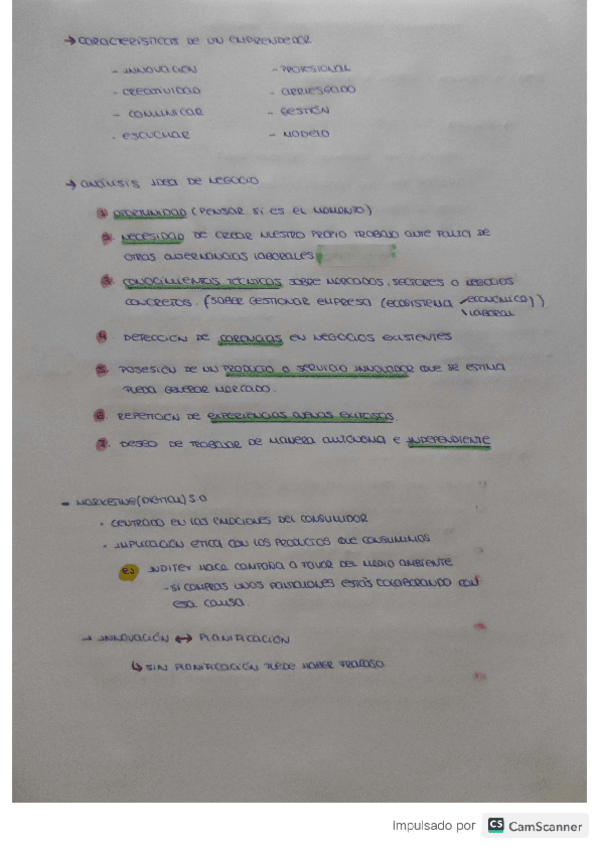 → CARACTERÍSTICAS DE UN EMPRENDEDOR
- INNOVACIÓN - PROFESIONAL
- CREATIVIDAD - ARRIESGADO
- COMUNICAR - GESTIÓN
- ESCUCHAR - MODELO
→ ANÁLISIS IDEA DE NEGOCIO
1. OPORTUNIDAD (PENSAR SI ES EL MOMENTO)
2. NECESIDAD DE CREAR NUESTRO PROPIO TRABAJO ANTE FALTA DE
OTRAS ALTERNANCIAS LABORALES
3. CONOCIMIENTOS TÉCNICOS SOBRE MERCADOS, SECTORES O NEGOCIOS
CONCRETOS. (SABER GESTIONAR EMPRESA (ECOSISTEMA ECONÓMICO))
LABORAL
4. DETECCIÓN DE CARENCIAS EN NEGOCIOS EXISTENTES
5. POSESIÓN DE UN PRODUCTO O SERVICIO INNOVADOR QUE SE ESTIMA
PUEDA GENERAR MERCADO.
6. REPETICIÓN DE EXPERIENCIAS AJENAS EXITOSAS.
7. DESEO DE TRABAJAR DE MANERA AUTÓNOMA E INDEPENDIENTE
- MARKETING (DIGITAL) 5.0
· CENTRADO EN LAS EMOCIONES DEL CONSUMIDOR
· IMPLICACIÓN ETICA CON LOS PRODUCTOS QUE CONSUMIMOS
ej INDITEX HACE CAMPAÑA A FAVOR DEL MEDIO AMBIENTE
- SI COMPRAS UNOS PANTALONES ESTÁS COLABORANDO CON
ESA CAUSA.
→ INNOVACIÓN ↔ PLANIFICACIÓN
↳ SIN PLANIFICACIÓN PUEDE HABER FRACASO
Impulsado por CS CamScanner